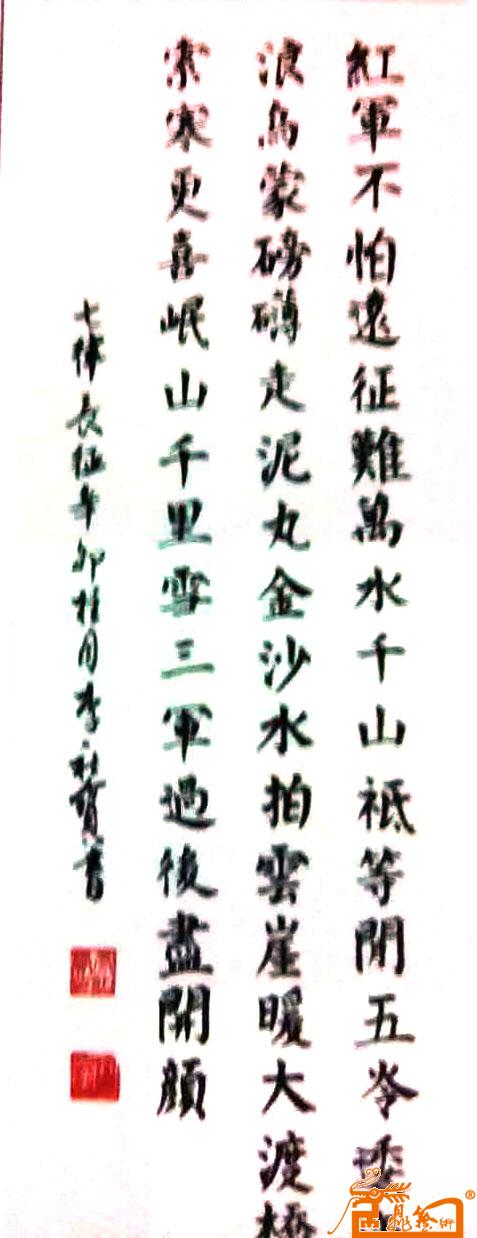 紅軍不怕遠征難萬水千山祗等閒五岺逶
浪烏蒙磅礴走泥丸金沙水拍雲崖暖大渡橋
索寒更喜岷山千里雪三軍過後盡開顔
七律長征辛卯桂月李永賀書